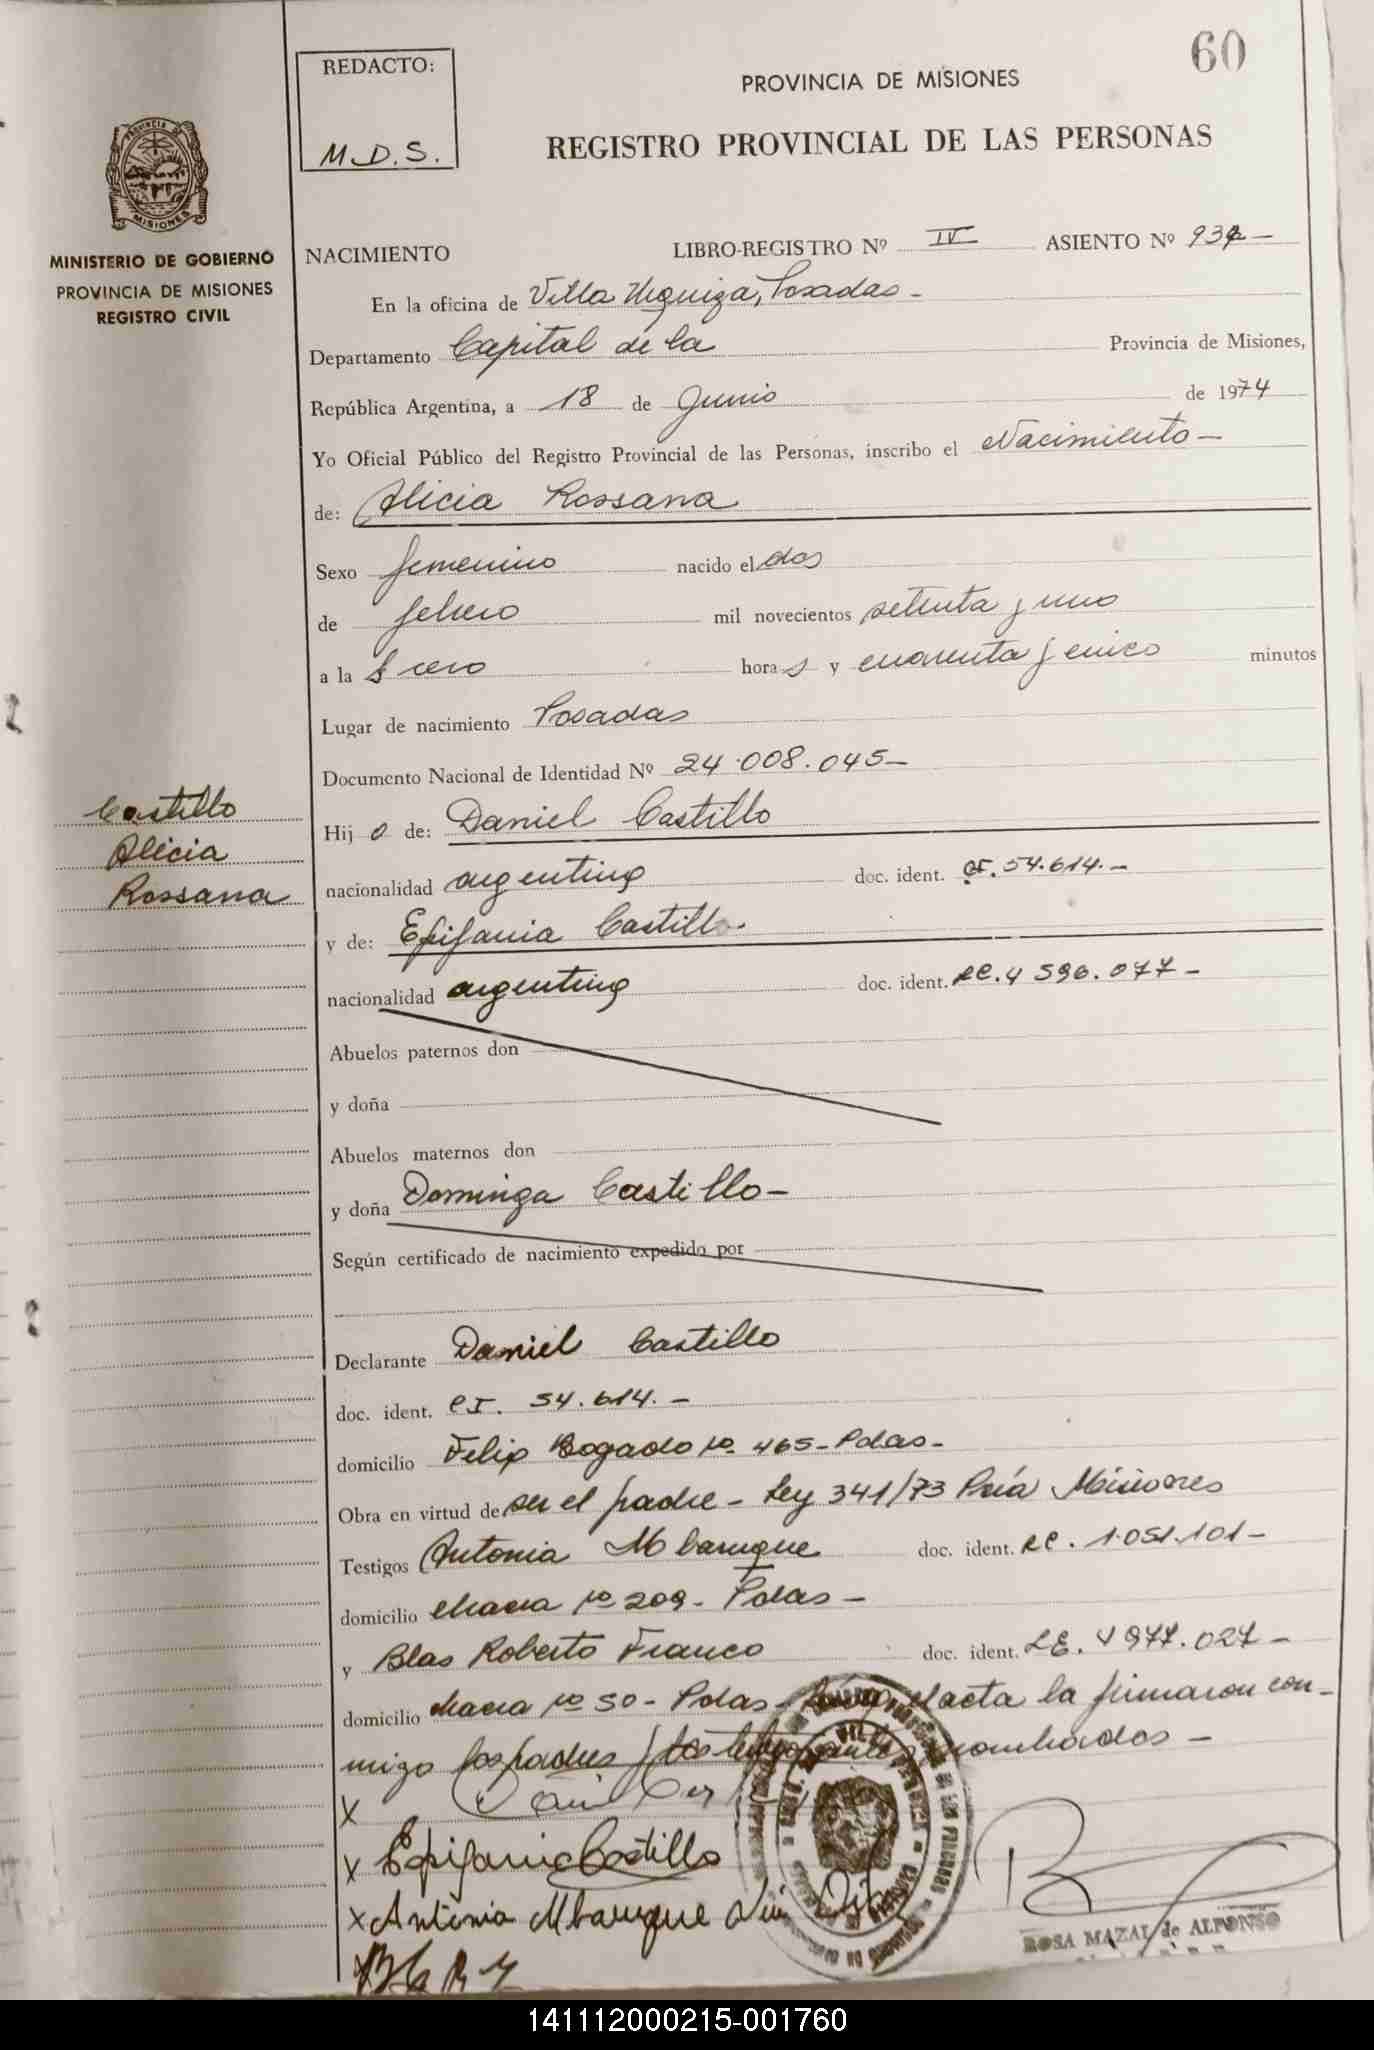 60
REDACTO:
M.D.S.
PROVINCIA DE MISIONES
REGISTRO PROVINCIAL DE LAS PERSONAS
MINISTERIO DE GOBIERNO
PROVINCIA DE MISIONES
REGISTRO CIVIL
NACIMIENTO LIBRO-REGISTRO Nº IV ASIENTO Nº
En la oficina de Villa Urquiza, Posadas -
Departamento Capital de la Provincia de Misiones,
República Argentina, a 18 de Junio de 1974
Yo Oficial Público del Registro Provincial de las Personas, inscribo el Nacimiento -
de: Alicia Rossana
Sexo femenino nacido el dos
de febrero mil novecientos setenta y uno
a la s cero hora s y cuarenta y cinco minutos
Lugar de nacimiento Posadas
Documento Nacional de Identidad Nº 24.008.045 -
Castillo
Alicia
Rossana
Hij a de: Daniel Castillo
nacionalidad argentina doc. ident. CI. 54.614. -
y de: Epifania Castillo.
nacionalidad argentina doc. ident. LC. 4 596.077 -
Abuelos paternos don
y doña
Abuelos maternos don
y doña Dominga Castillo -
Según certificado de nacimiento expedido por
Declarante Daniel Castillo
doc. ident. CI. 54.614. -
domicilio Felix Bogado Nº 465 - Pdas -
Obra en virtud de ser el padre - Ley 341/73 Pcía Misiones
Testigos Antonia Mbarugue doc. ident. LC. 1.051.101 -
domicilio Chacra Nº 209 - Pdas -
y Blas Roberto Franco doc. ident. LE. 4 977.027 -
domicilio Chacra Nº 50 - Pdas - acta la firmaron con-
migo los padres y los testigos nombrados -
X
X Epifania Castillo
X Antonia Mbarugue
X
ROSA MAZAL de ALFONSO
141112000215-001760